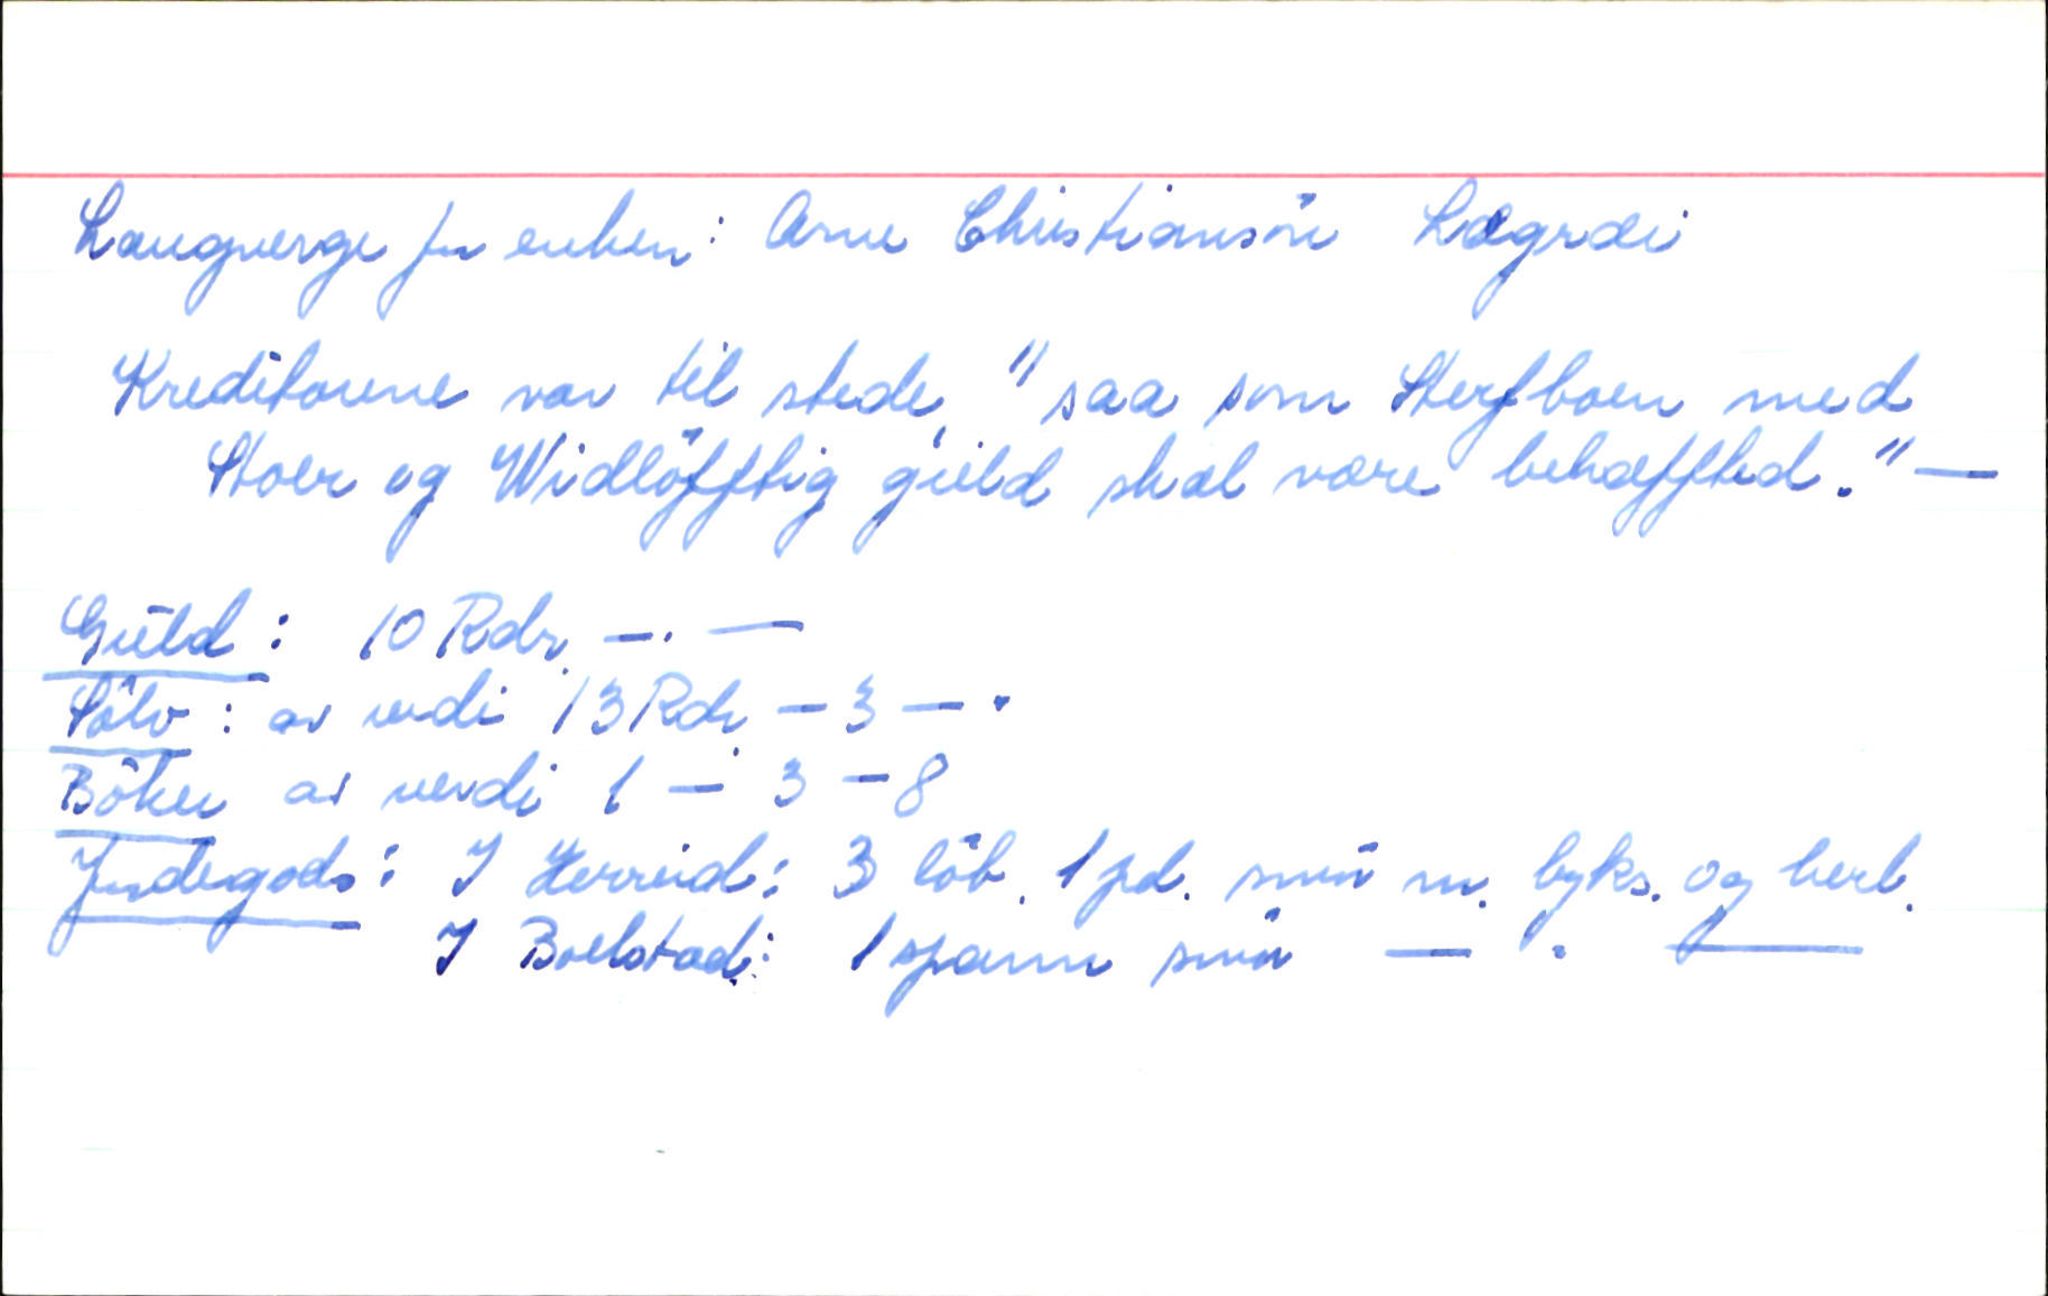 Laugverge for enken: Arne Christiansön Lægræi
Kreditorene var til stede, "saa som Sterfboen med
Stoer og Widlöfftig gield skal være behæffted." —
Guld: 10 Rdr. — . —
Sölv: av verdi 13 Rdr. — 3 — .
Böker av verdi 1 — 3 — 8
Jordegods: I Herreid: 3 löb. 1 pd. smör m. byks. og herl.
I Boelstad: 1 spann smör — " —